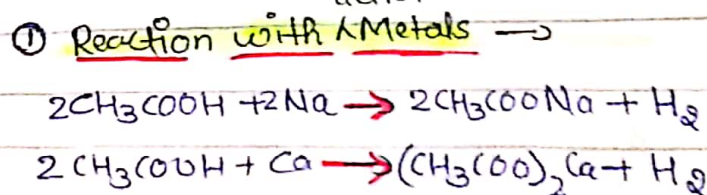 ① Reaction with Metals →
2CH₃COOH + 2Na → 2CH₃COONa + H₂
2CH₃COOH + Ca → (CH₃COO)₂Ca + H₂